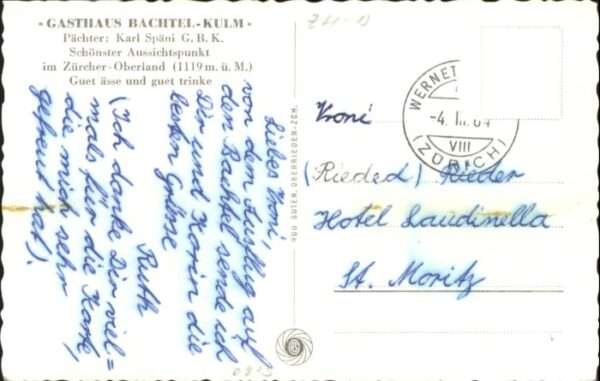 • GASTHAUS BACHTEL-KULM •
Pächter: Karl Späni G. B. K.
Schönster Aussichtspunkt
im Zürcher-Oberland (1119 m. ü. M.)
Guet ässe und guet trinke
Liebes Vroni,
von dem Ausflug auf
den Bachtel sende ich
Dir und Karin die
besten Grüsse
Ruth
(Ich danke Dir viel=
mals für die Karte,
die mich sehr
gefreut hat).
-4. III. 64
VIII
(ZÜRICH)
Vroni
(Rieded) Rieder
Hotel Laudinella
St. Moritz